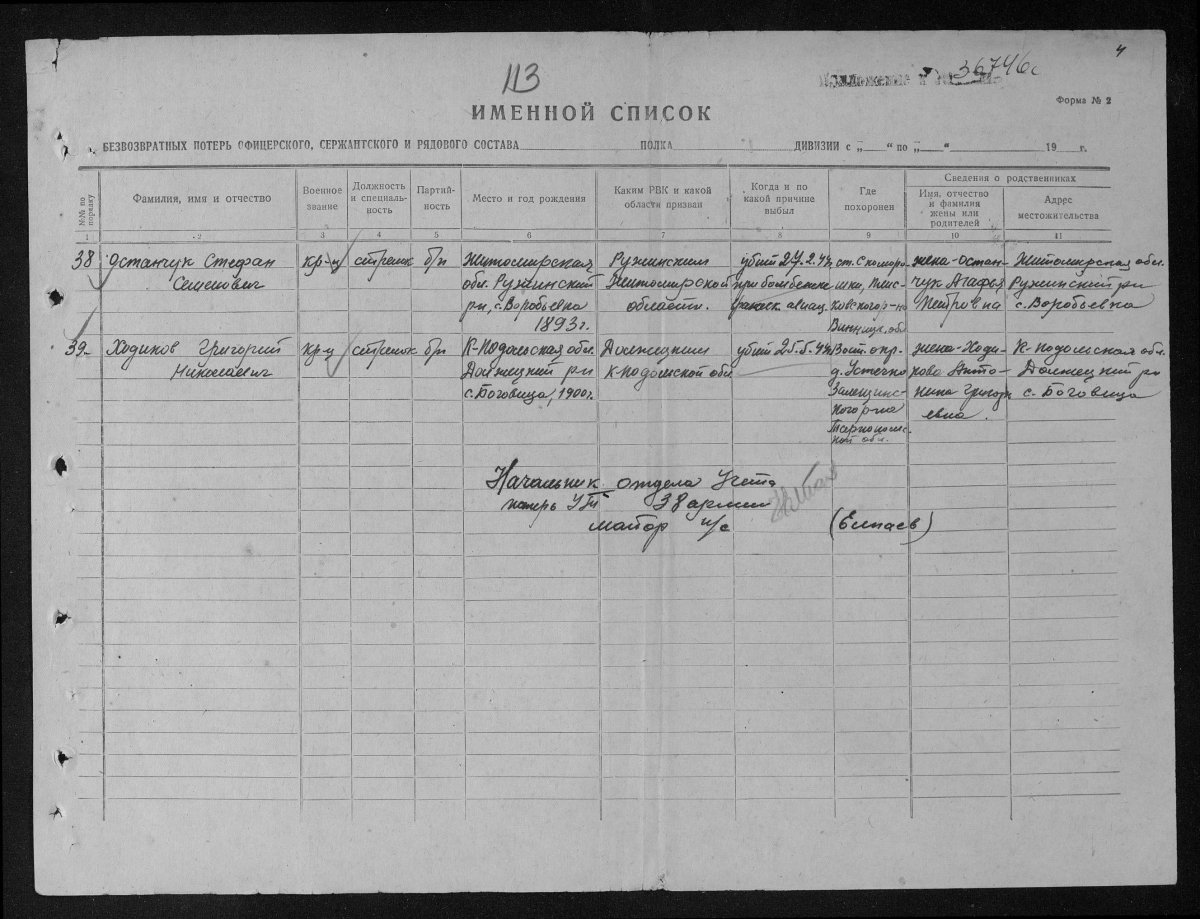 4
113
Приложение к 36746с
ИМЕННОЙ СПИСОК
Форма № 2
БЕЗВОЗВРАТНЫХ ПОТЕРЬ ОФИЦЕРСКОГО, СЕРЖАНТСКОГО И РЯДОВОГО СОСТАВА ПОЛКА ДИВИЗИИ с „ “ по „ “ 19 г.
№№ по порядку
Фамилия, имя и отчество
Военное звание
Должность и специальность
Партийность
Место и год рождения
Каким РВК и какой области призван
Когда и по какой причине выбыл
Где похоронен
Сведения о родственниках
Имя, отчество и фамилия жены или родителей
Адрес местожительства
1 2 3 4 5 6 7 8 9 10 11
38 Остапчук Стефан кр-ц стрелок б/п Житомирская Ружинским убит 27.2.44 ст. Скоморо- жена-Остап- Житомирская обл.
Семенович обл. Ружинский Житомирской при бомбежке шки, Плис- чук Агафья Ружинский р-н
р-н, с. Воробьевка области. авиац. ковского р-на Петровна с. Воробьевка
1893 г. Винниц. обл.
39 Ходиков Григорий кр-ц стрелок б/п К-Подольская обл. Должецким убит 25.5.44 Вост. окр. жена-Ходи- К-Подольская обл.
Николаевич Должецкий р-н К-Подольской обл. д. Устечко кова Анто- Должецкий р-н
с. Боговица, 1900 г. Залещицс- нина Григорь с. Боговица
кого р-на евна.
Тернопольс-
кой обл.
Начальник отдела учета
потерь 38 армии
майор и/с (Елпаев)